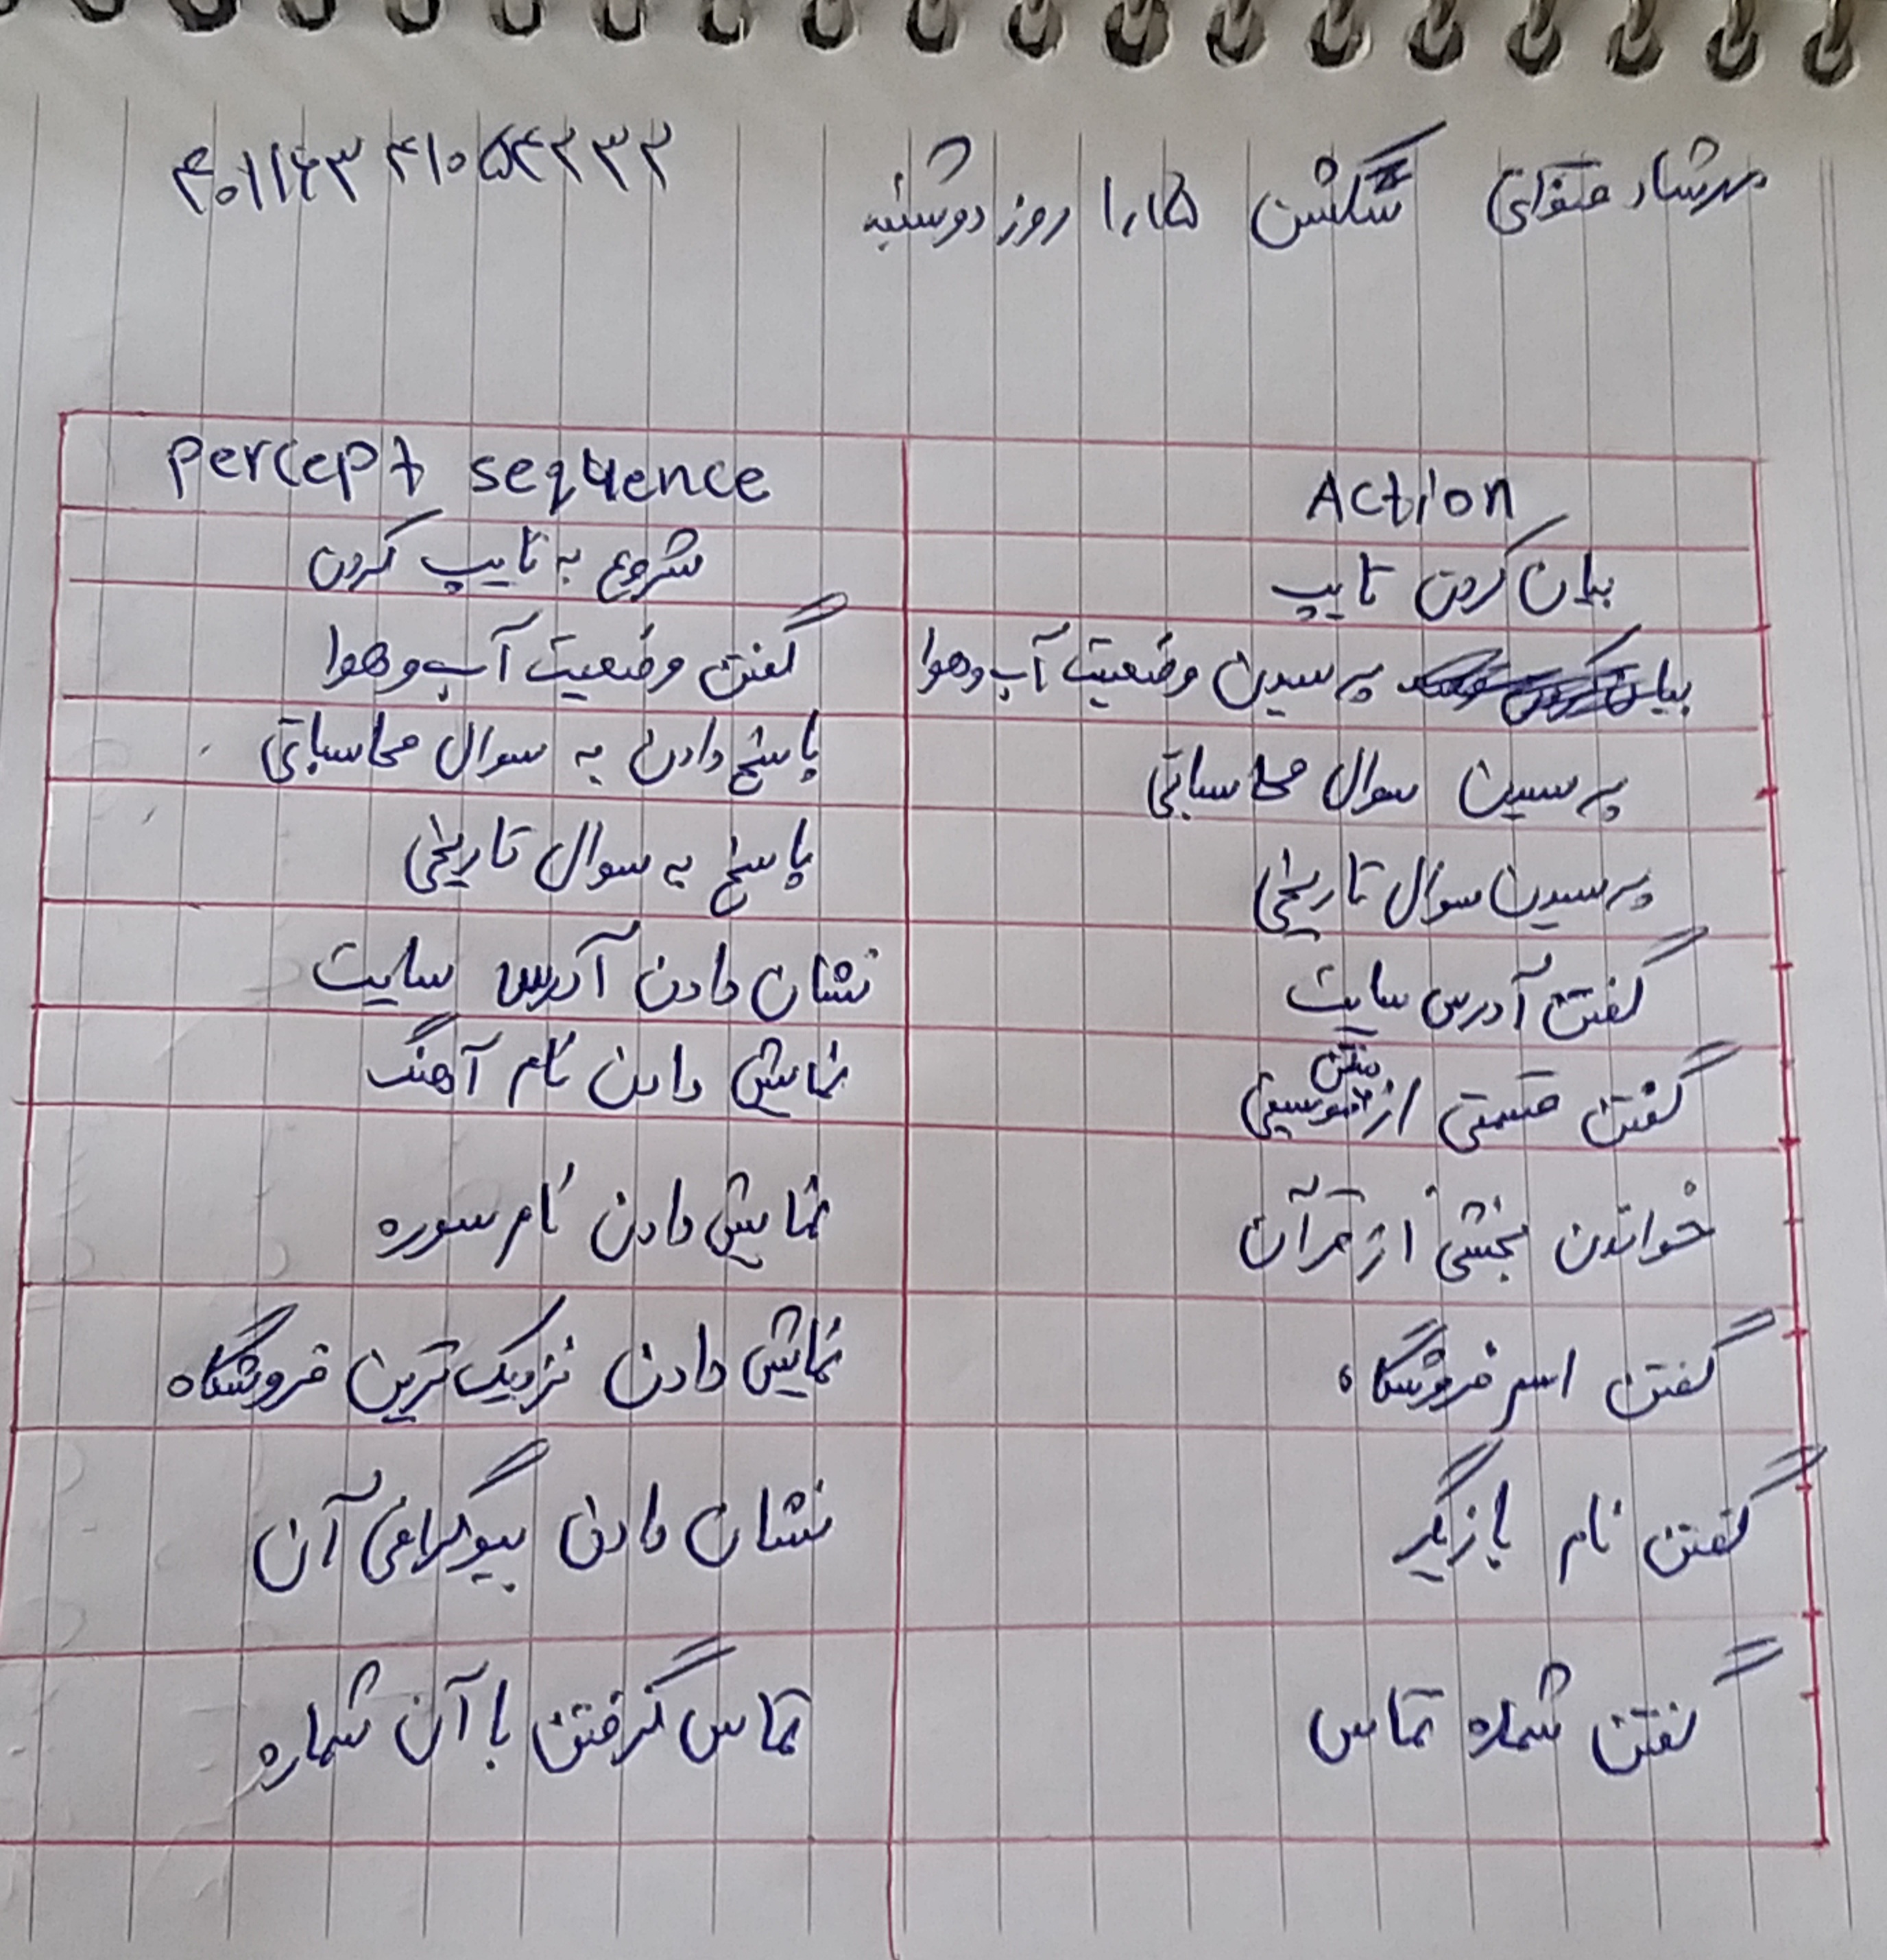 مهرشاد صفوی سکشن ۱،۱۵ روز دوشنبه ۴۰۱۱۶۳۴۱۰۵۴۲۳۳
percept sequence Action
شروع به تایپ کردن بیان کردن تایپ
گفتن وضعیت آب و هوا پرسیدن وضعیت آب و هوا
پاسخ دادن به سوال محاسباتی پرسیدن سوال محاسباتی
پاسخ به سوال تاریخی پرسیدن سوال تاریخی
نشان دادن آدرس سایت گفتن آدرس سایت
نمایش دادن نام آهنگ گفتن قسمتی از متن موسیقی
نمایش دادن نام سوره خواندن بخشی از قرآن
نمایش دادن نزدیک ترین فروشگاه گفتن اسم فروشگاه
نشان دادن بیوگرافی آن گفتن نام بازیگر
تماس گرفتن با آن شماره گفتن شماره تماس